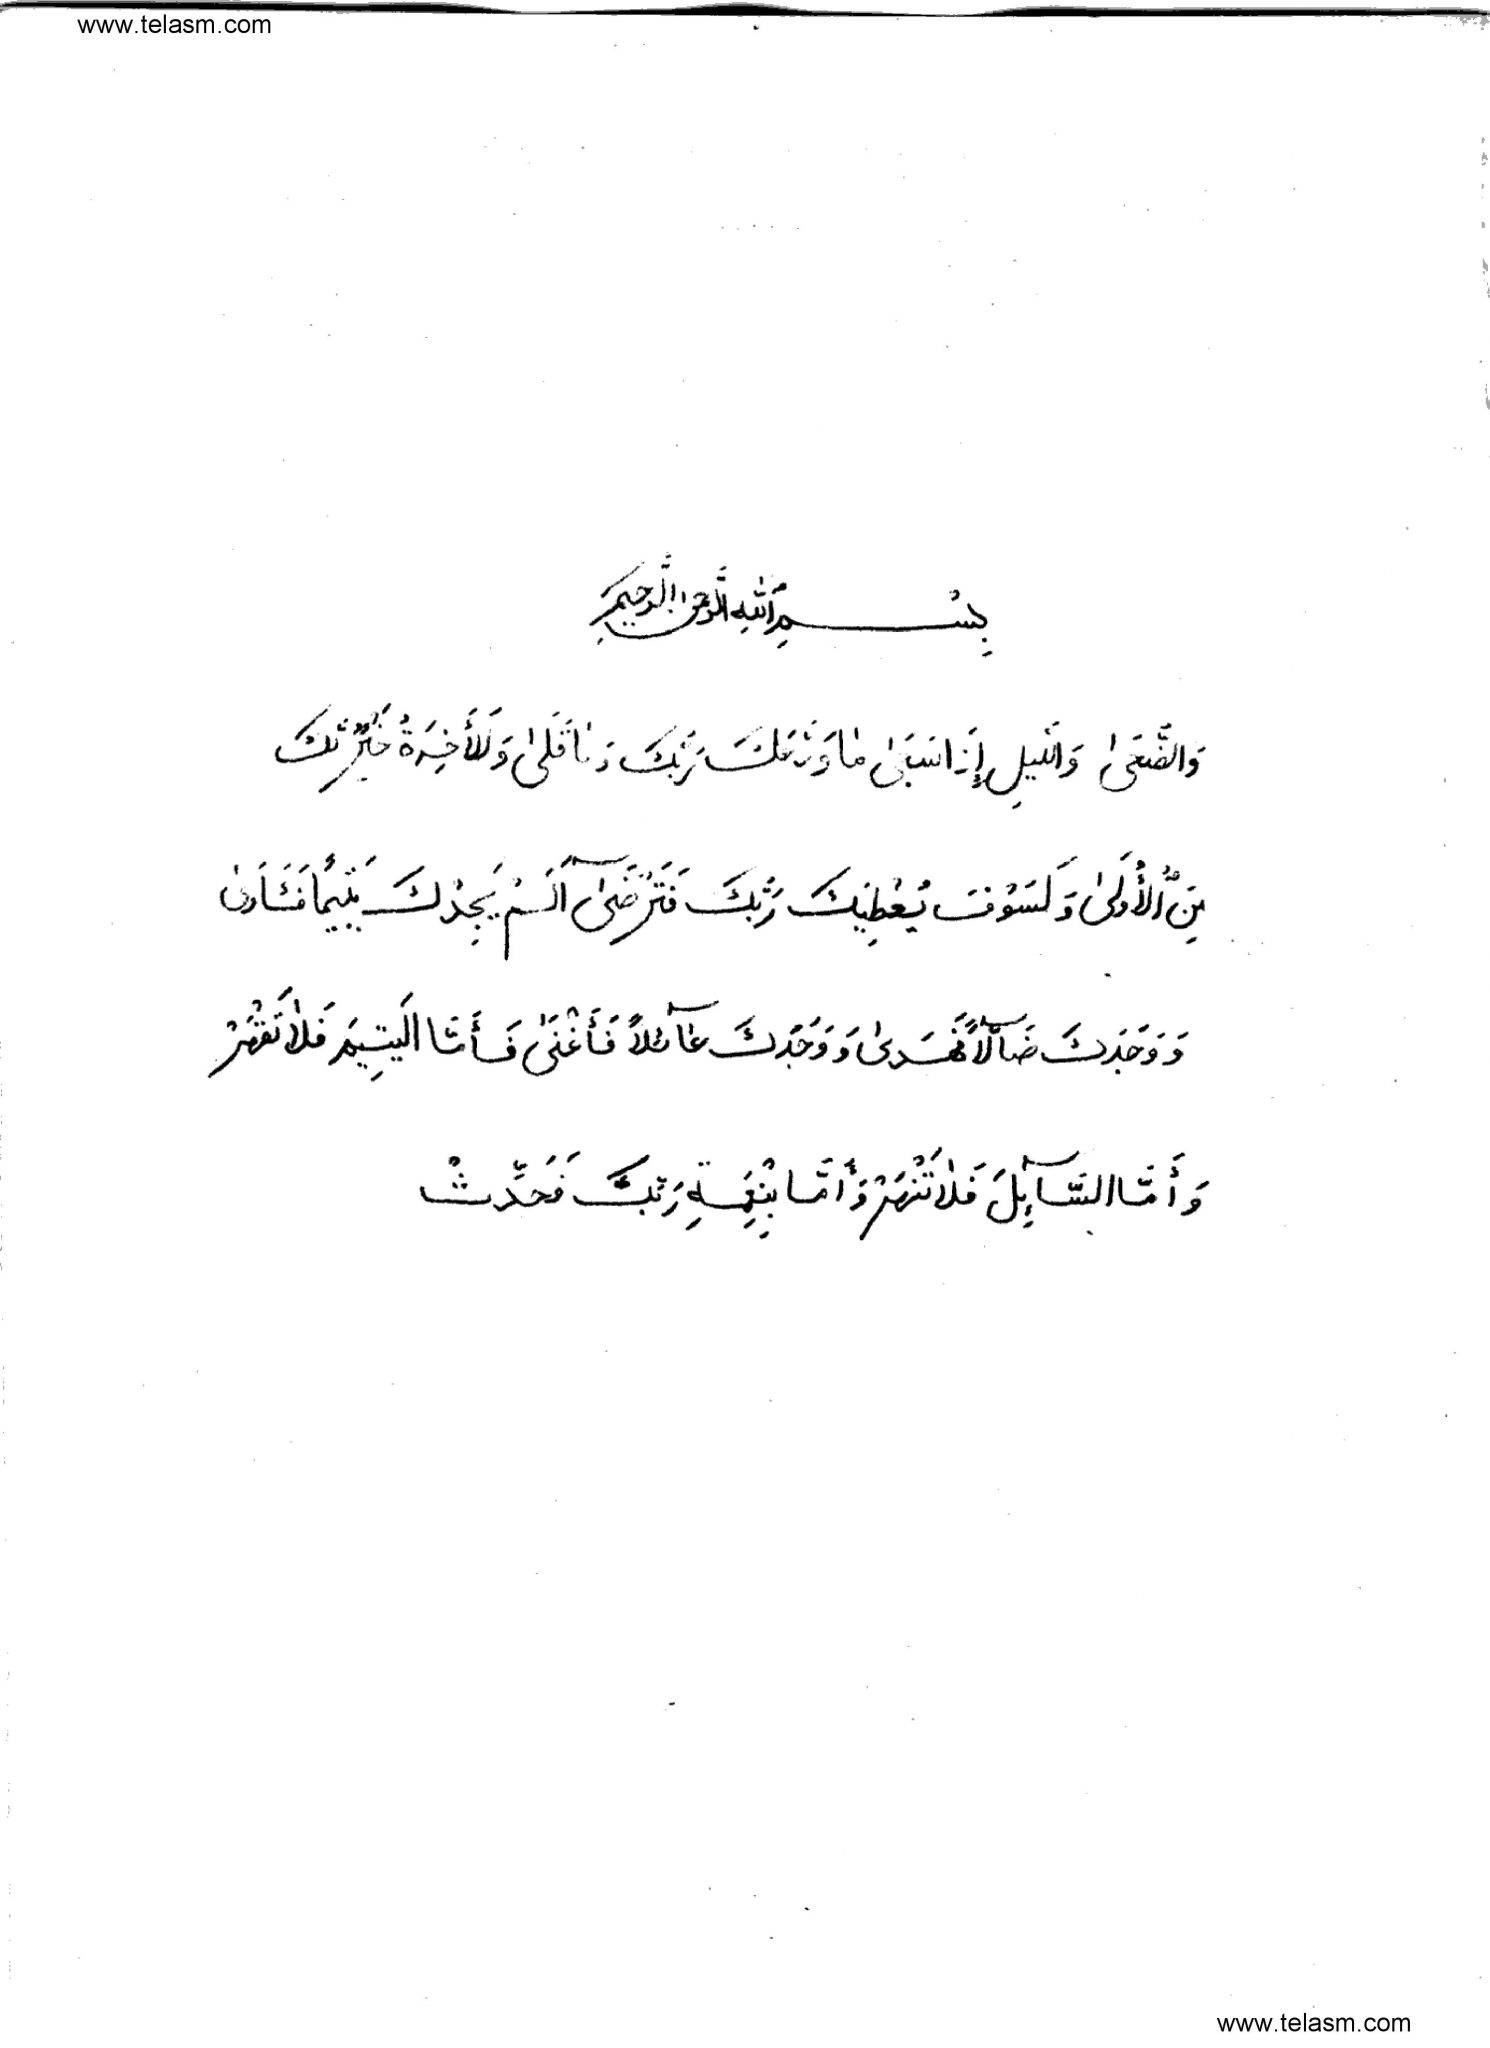 www.telasm.com
بِسْمِ اللهِ الرَّحْمٰنِ الرَّحِيمِ
وَالضُّحَىٰ وَاللَّيلِ إِذَا سَجَىٰ مٰا وَدَّعَكَ رَبُّكَ وَمٰا قَلَىٰ وَلَلْأَخِرَةُ خَيْرٌ لَّكَ
مِنَ الْأُوْلَىٰ وَلَسَوْفَ يُعْطِيكَ رَبُّكَ فَتَرْضَىٰٓ أَلَمْ يَجِدْكَ يَتِيمًا فَـَٔاوَىٰ
وَوَجَدَكَ ضَآلًّا فَهَدَىٰ وَوَجَدَكَ عَآئلاً فَأَغْنَىٰ فَأَمَّا الْيَتِيمَ فَلٰا تَقْهَرْ
وَأَمَّا السَّآئِلَ فَلٰا تَنْهَرْ وَأَمَّا بِنِعْمَةِ رَبِّكَ فَحَدِّثْ
www.telasm.com